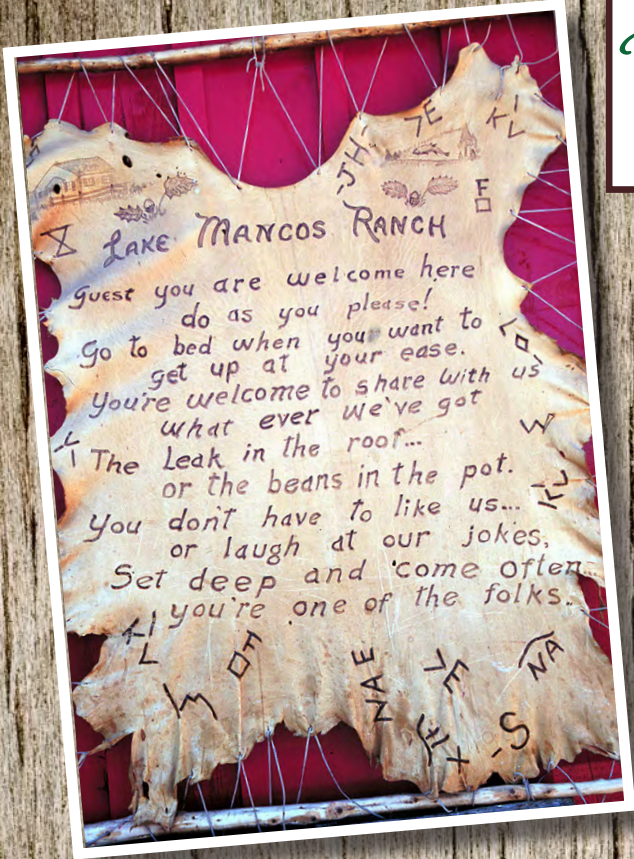 LAKE MANCOS RANCH
Guest you are welcome here
do as you please!
Go to bed when you want to
get up at your ease.
You're welcome to share with us
what ever we've got
The Leak in the roof...
or the beans in the pot.
You don't have to like us...
or laugh at our jokes,
Set deep and come often...
you're one of the folks.
NAE